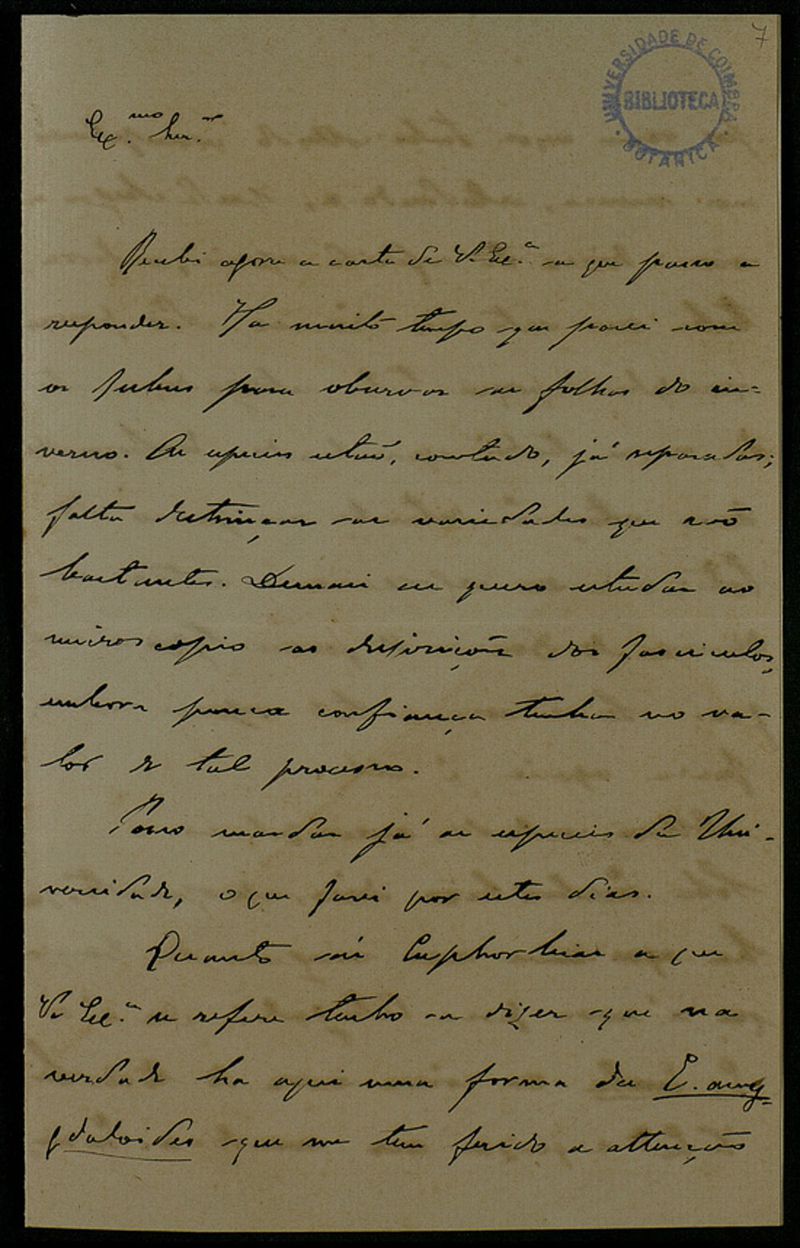 7
UNIVERSIDADE DE COIMBRA
BIBLIOTECA
BOTANICA
Ex.mo Snr.
Recebi agora a carta de V. Ex.a a que passo a
responder. Ha muito tempo que parei com
os Rubus para observar as folhas do in-
verno. As especies estão, contudo, já separadas;
falta destrinçar as variedades que são
bastantes. Demais eu quero estudar ao
microscopio as disposições dos fasciculos,
embora pouca confiança tenha no va-
lor de tal processo.
Posso mandar já as especies da Uni-
versidade, o que farei por estes dias.
Quanto ás Euphorbias a que
V. Ex.a se refere tenho a dizer que na
verdade ha aqui uma forma da E. amyg-
daloides que me tem ferido a attenção